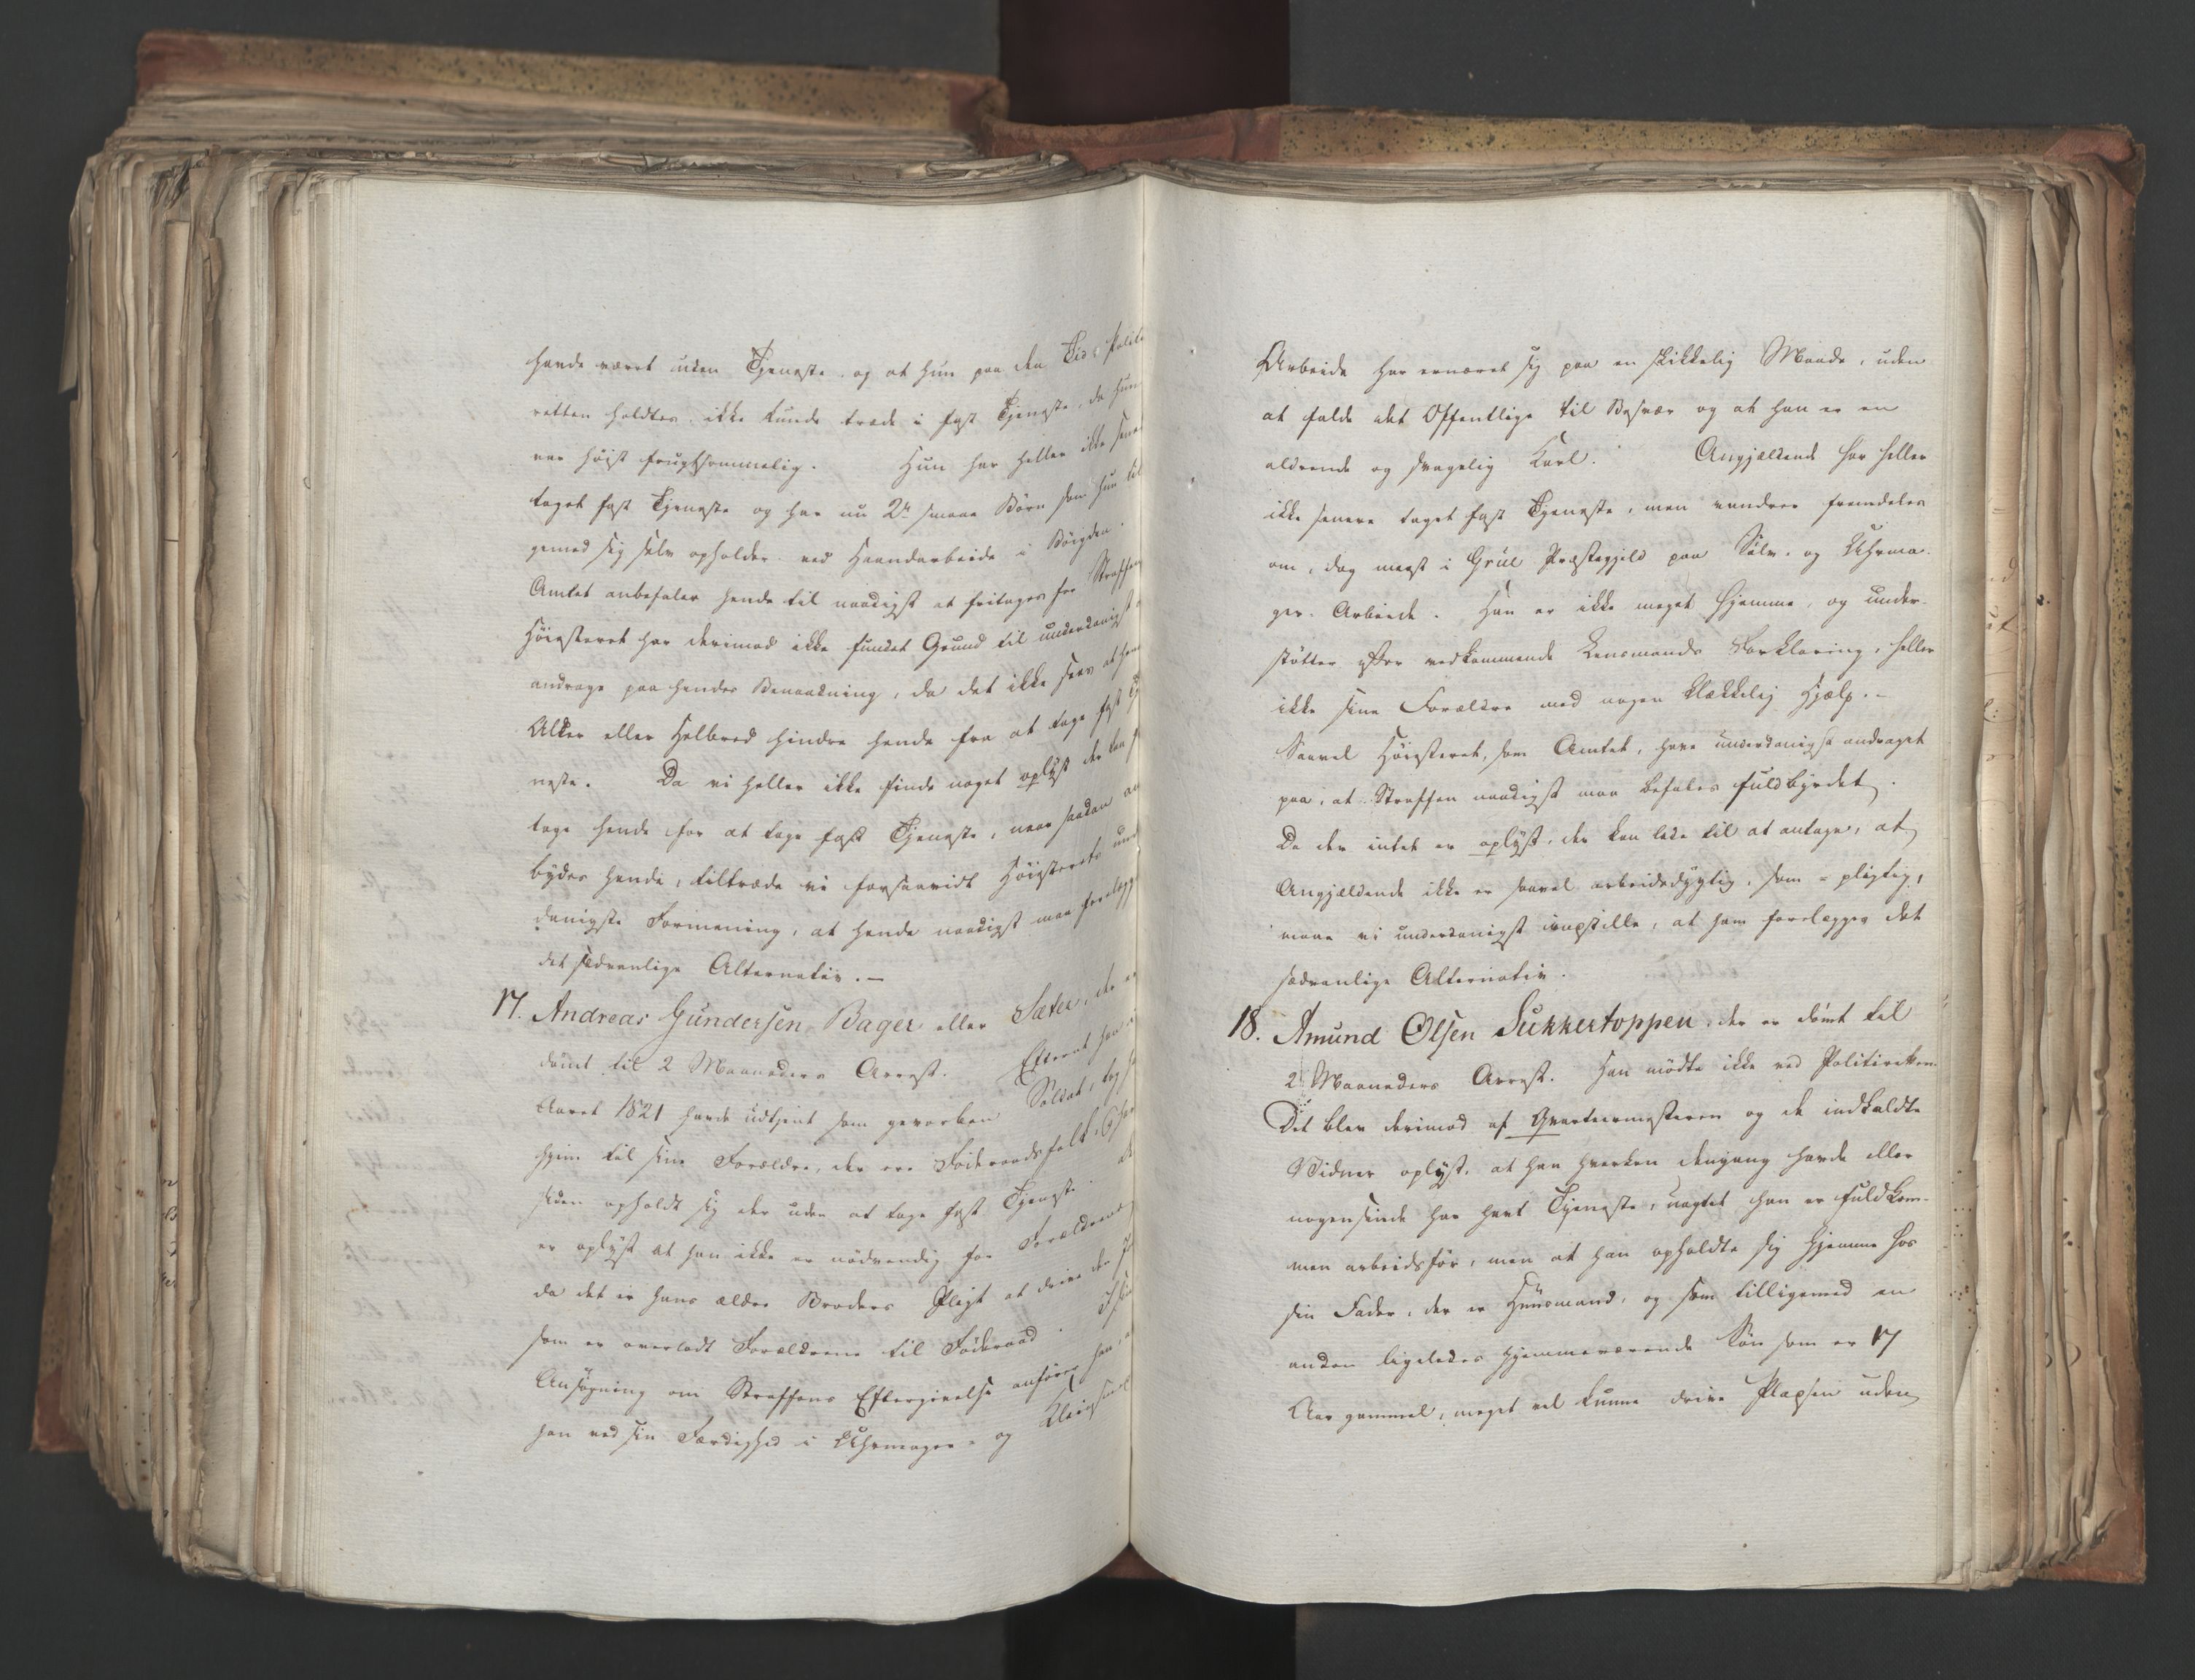 havde været uden Tjeneste og at hun paa den Tid Politi
retten holdtes, ikke kunde træde i fast Tjeneste, da hun
var høist frugtsommelig. Hun har heller ikke senere
taget fast Tjeneste og har nu 2de smaae Børn som hun til
gemed sig selv opholder ved Haandarbeide i Bøigden.
Amtet anbefaler hende til naadigst at fritages for Straffen
Høiesteret har derimod ikke fundet Grund til underdanigst
andrage paa hendes Benaadning, da det ikke sees at hendes
Alder eller Helbred hindre hende fra at tage fast Tje
neste. Da vi heller ikke finde noget oplyst der kan
tage hende for at tage fast Tjeneste, naar saadan
bydes hende, tiltræde vi forsaavidt Høiesterets under
danigste Formening, at hende naadigst maa forelægges
det sædvanlige Alternativ.-
17. Andreas Gundersen Bager eller Sæter, der er
dømt til 2 Maaneders Arrest. Efterat han i
Aaret 1821 havde udtjent som gevorben Soldat, tog han
hjem til sine Forældre, der ere Føderaadsfolk, og har
siden opholdt sig der uden at tage fast Tjeneste.
er oplyst at han ikke er nødvendig for Forældrene
da det er hans ældre Broders Pligt at drive den
som er overladt Forældrene til Føderaad. I sin
Ansøgning om Straffens Eftergivelse anfører han, at
han ved sin Færdighed i Uhrmager- og
Arbeide har ernæret sig paa en skikkelig Maade, uden
at falde det Offentlige til Besvær og at han er en
aldrende og svagelig Karl. Angjældende har heller
ikke senere taget fast Tjeneste, men vandrer fremdeles
om, dog meest i Grue Præstegjeld paa Sølv- og Uhrma-
ger-Arbeide. Han er ikke meget hjemme, og under-
støtter efter vedkommende Lensmands Forklaring, heller
ikke sine Forældre med nogen klækkelig Hjælp.-
Saavel Høiesteret, som Amtet, have underdanigst andraget
paa, at Straffen naadigst maa befales fuldbyrdet.
Da der intet er oplyst, der kan lede til at antage, at
Angjældende ikke er saavel arbeidsdygtig, som -pligtig,
maae vi underdanigst indstille, at ham forelægges det
sædvanlige Alternativ.
18. Amund Olsen Sukkertoppen, der er dømt til
2 Maaneders Arrest. Han mødte ikke ved Politiretten.
Det blev derimod af Qvarteermesteren og de indkaldte
Vidner oplyst, at han hverken dengang havde eller
nogensinde har havt Tjeneste, uagtet han er fuldkom-
men arbeidsfør, men at han opholdte sig hjemme hos
sin Fader, der er Huusmand, og som tilligemed en
anden ligeledes hjemmeværende Søn som er 17
Aar gammel, meget vel kunne drive Pladsen uden